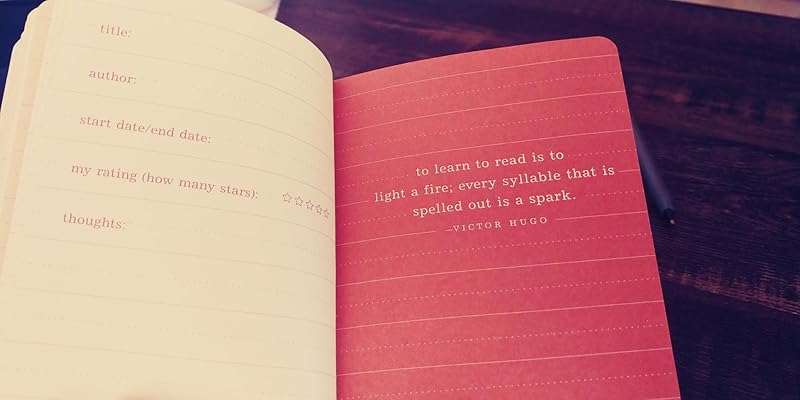 title:
author:
start date/end date:
my rating (how many stars):
thoughts:
to learn to read is to
light a fire; every syllable that is
spelled out is a spark.
—VICTOR HUGO